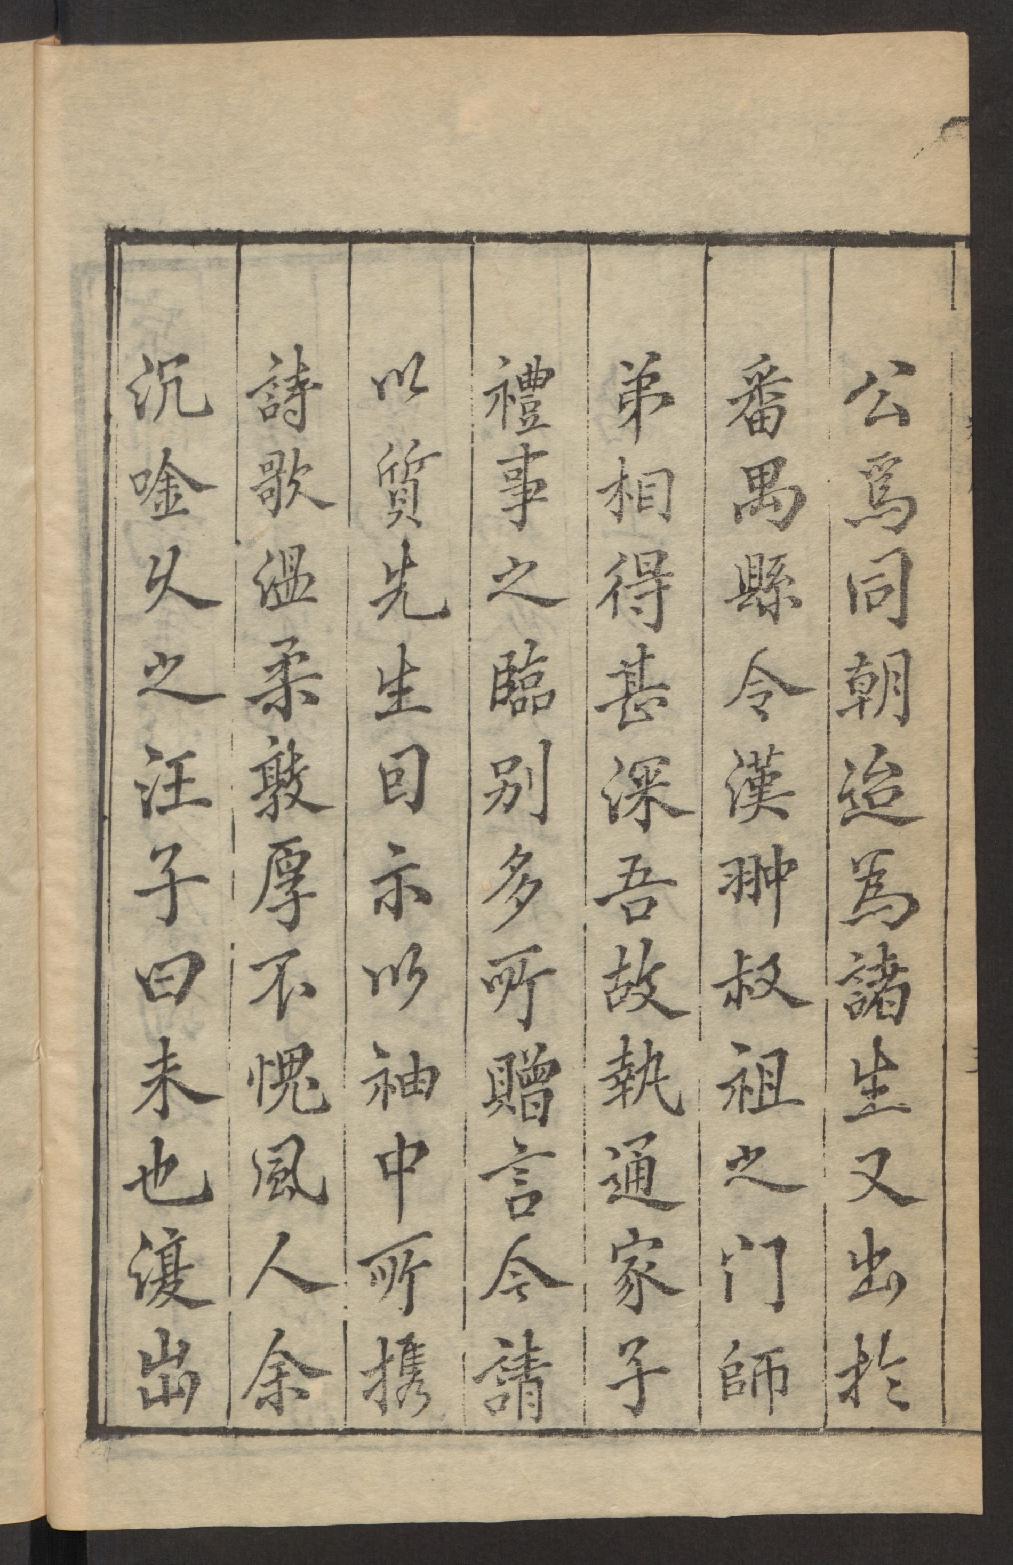 公爲同朝迨爲諸生又出於
番禺縣令漢翀叔祖之门師
弟相得甚深吾故執通家子
禮事之臨别多所贈言今請
以質先生回示以袖中所携
詩歌温柔敦厚不愧風人余
沉唫久之汪子曰未也濅出